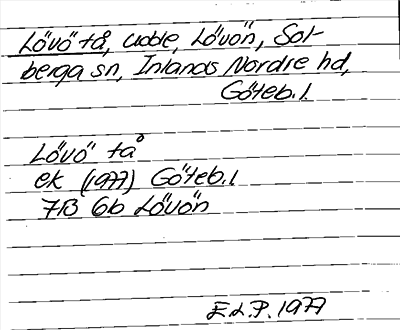 Lövö tå, udde, Lövön, Sol-
berga sn, Inlands Nordre hd,
Göteb.l.
Lövö tå
ek (1977) Göteb.l
7B 6b Lövön
E.L.P. 1977